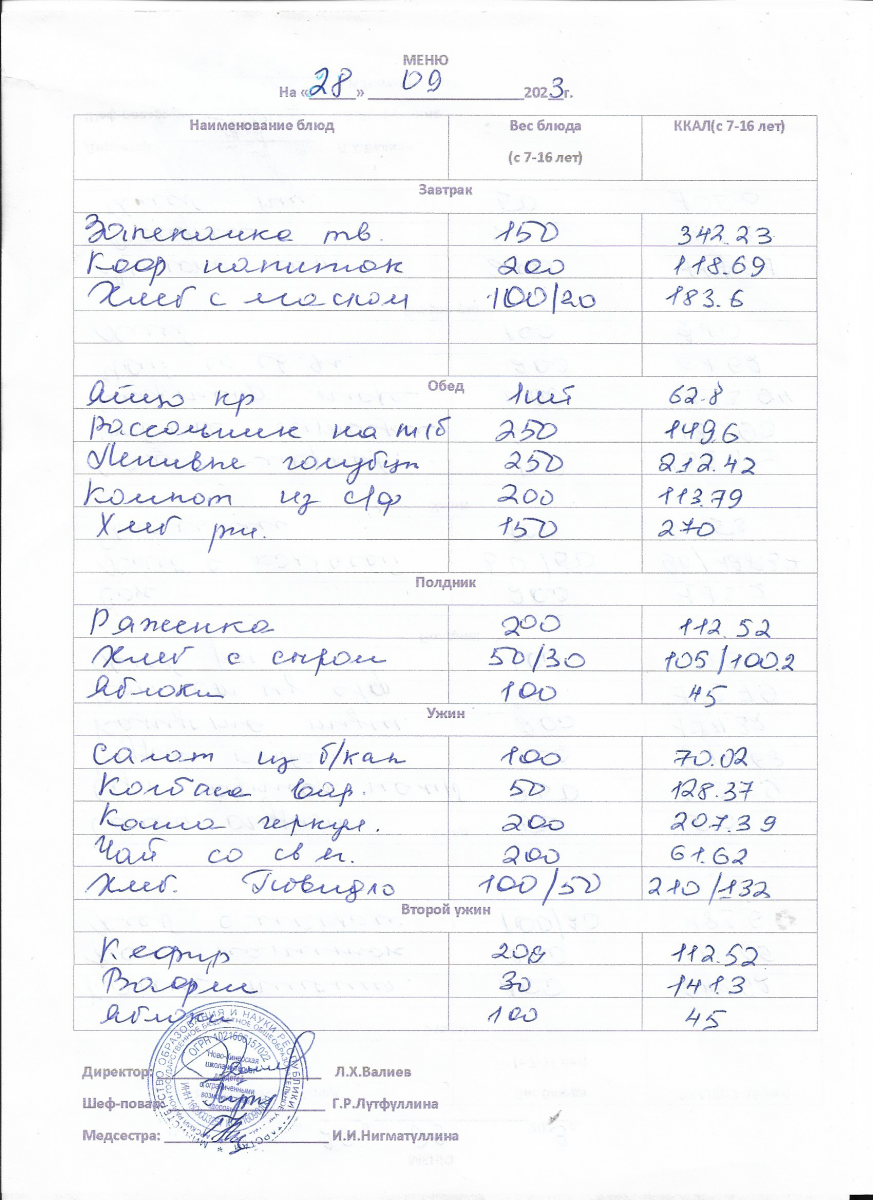 МЕНЮ
На «28» 09 2023г.
Наименование блюд Вес блюда (с 7-16 лет) ККАЛ(с 7-16 лет)
Завтрак
Запеканка тв. 150 342.23
Коф напиток 200 118.69
Хлеб с маслом 100/20 183.6
Обед
Яйцо кр 1шт 62.8
Рассольник на м/б 250 149.6
Ленивые голубцы 250 212.42
Компот из с/ф 200 113.79
Хлеб рж. 150 270
Полдник
Ряженка 200 112.52
Хлеб с сыром 50/30 105/100.2
Яблоки 100 45
Ужин
Салат из б/кап 100 70.02
Колбаса вар. 50 128.37
Каша геркул. 200 207.39
Чай со св м. 200 61.62
Хлеб. Повидло 100/50 210/132
Второй ужин
Кефир 200 112.52
Вафли 30 141.3
Яблоки 100 45
Директор: Л.Х.Валиев
Шеф-повар: Г.Р.Лутфуллина
Медсестра: И.И.Нигматуллина